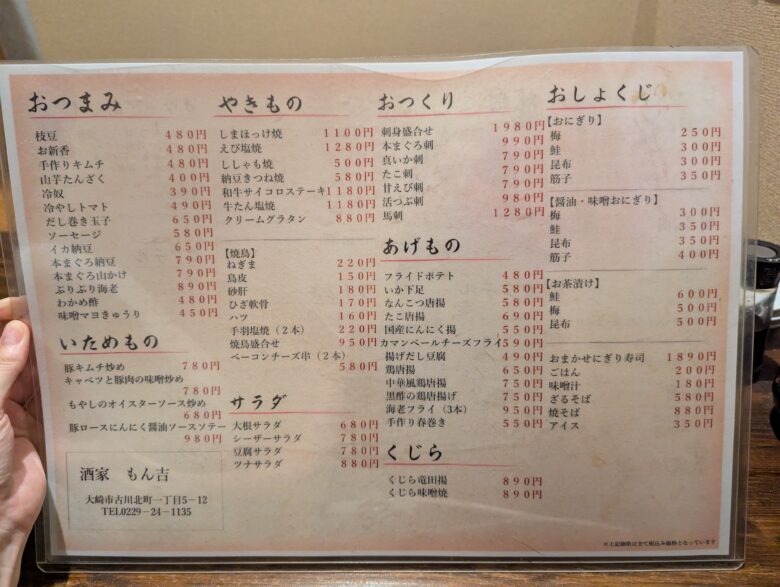 おつまみ
枝豆 480円
お新香 480円
手作りキムチ 480円
山芋たんざく 400円
冷奴 390円
冷やしトマト 490円
だし巻き玉子 650円
ソーセージ 580円
イカ納豆 650円
本まぐろ納豆 790円
本まぐろ山かけ 790円
ぷりぷり海老 890円
わかめ酢 480円
味噌マヨきゅうり 450円
いためもの
豚キムチ炒め 780円
キャベツと豚肉の味噌炒め
780円
もやしのオイスターソース炒め
680円
豚ロースにんにく醤油ソースソテー
980円
酒家 もん吉
大崎市古川北町一丁目5−12
TEL0229−24−1135
やきもの
しまほっけ焼 1100円
えび塩焼 1280円
ししゃも焼 500円
納豆きつね焼 580円
和牛サイコロステーキ 1180円
牛たん塩焼 1180円
クリームグラタン 880円
【焼鳥】
ねぎま 220円
鳥皮 150円
砂肝 180円
ひざ軟骨 170円
ハツ 160円
手羽塩焼（2本） 220円
焼鳥盛合せ 950円
ベーコンチーズ串（2本）
580円
サラダ
大根サラダ 680円
シーザーサラダ 780円
豆腐サラダ 780円
ツナサラダ 880円
おつくり
刺身盛合せ 1980円
本まぐろ刺 990円
真いか刺 790円
たこ刺 790円
甘えび刺 790円
活つぶ刺 980円
馬刺 1280円
あげもの
フライドポテト 480円
いか下足 580円
なんこつ唐揚 580円
たこ唐揚 690円
国産にんにく揚 550円
カマンベールチーズフライ 590円
揚げだし豆腐 490円
鶏唐揚 650円
中華風鶏唐揚 690円
黒酢の鶏唐揚げ 750円
海老フライ（3本） 950円
手作り春巻き 550円
くじら
くじら竜田揚 890円
くじら味噌焼 890円
おしょくじ
【おにぎり】
梅 250円
鮭 300円
昆布 300円
筋子 350円
【醤油・味噌おにぎり】
梅 300円
鮭 350円
昆布 350円
筋子 400円
【お茶漬け】
鮭 600円
梅 500円
昆布 500円
おまかせにぎり寿司 1890円
ごはん 200円
味噌汁 180円
ざるそば 580円
焼そば 880円
アイス 350円
※上記価格は全て税込み価格となっています